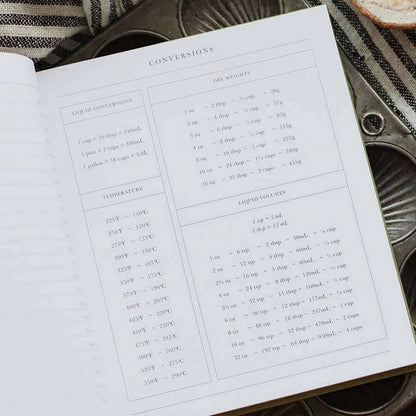 CONVERSIONS
LIQUID CONVERSIONS
1 cup = 16 tbsp = 240mL
1 pint = 2 cups = 480mL
1 gallon = 16 cups = 3.8L
TEMPERATURE
225°F ~ 110°C
250°F ~ 120°C
275°F ~ 135°C
300°F ~ 150°C
325°F ~ 165°C
350°F ~ 175°C
375°F ~ 190°C
400°F ~ 205°C
425°F ~ 220°C
450°F ~ 230°C
475°F ~ 245°C
500°F ~ 260°C
525°F ~ 275°C
550°F ~ 290°C
DRY WEIGHTS
1 oz ~ 2 tbsp ~ ⅛ cup ~ 28g
2 oz ~ 4 tbsp ~ ¼ cup ~ 57g
3 oz ~ 6 tbsp ~ ⅓ cup ~ 85g
4 oz ~ 8 tbsp ~ ½ cup ~ 115g
8 oz ~ 16 tbsp ~ 1 cup ~ 227g
16 oz ~ 24 tbsp ~ 1½ cup ~ 340g
16 oz ~ 32 tbsp ~ 2 cups ~ 455g
LIQUID VOLUMES
1 tsp = 5 mL
1 tbsp = 15 mL
1 oz ~ 6 tsp ~ 2 tbsp ~ 30mL ~ ⅛ cup
2 oz ~ 12 tsp ~ 4 tbsp ~ 60mL ~ ¼ cup
2⅔ oz ~ 16 tsp ~ 5 tbsp ~ 80mL ~ ⅓ cup
4 oz ~ 24 tsp ~ 8 tbsp ~ 120mL ~ ½ cup
5⅓ oz ~ 32 tsp ~ 11 tbsp ~ 160mL ~ ⅔ cup
6 oz ~ 36 tsp ~ 12 tbsp ~ 177mL ~ ¾ cup
8 oz ~ 48 tsp ~ 16 tbsp ~ 237mL ~ 1 cup
16 oz ~ 96 tsp ~ 32 tbsp ~ 470mL ~ 2 cups
32 oz ~ 192 tsp ~ 64 tbsp ~ 950mL ~ 4 cups